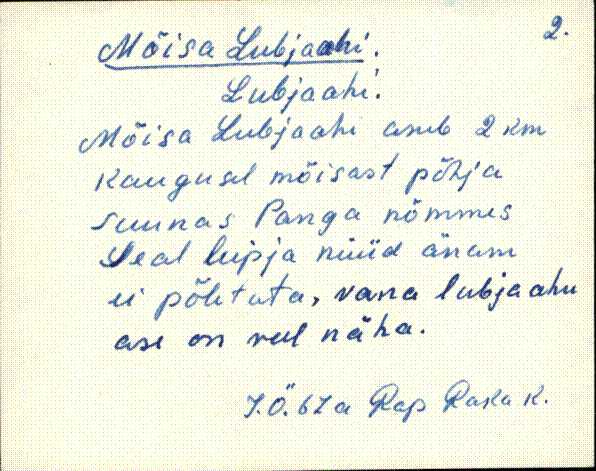 2.
Mõisa Lubjaahi.
Lubjaahi.
Mõisa Lubjaahi asub 2 km
kaugusel mõisast põhja
suunas Panga nõmmes
Seal lupja nüüd änam
ei põletata, vana lubjaahu
ase on veel näha.
J.Ö. 67a Rap Raka k.